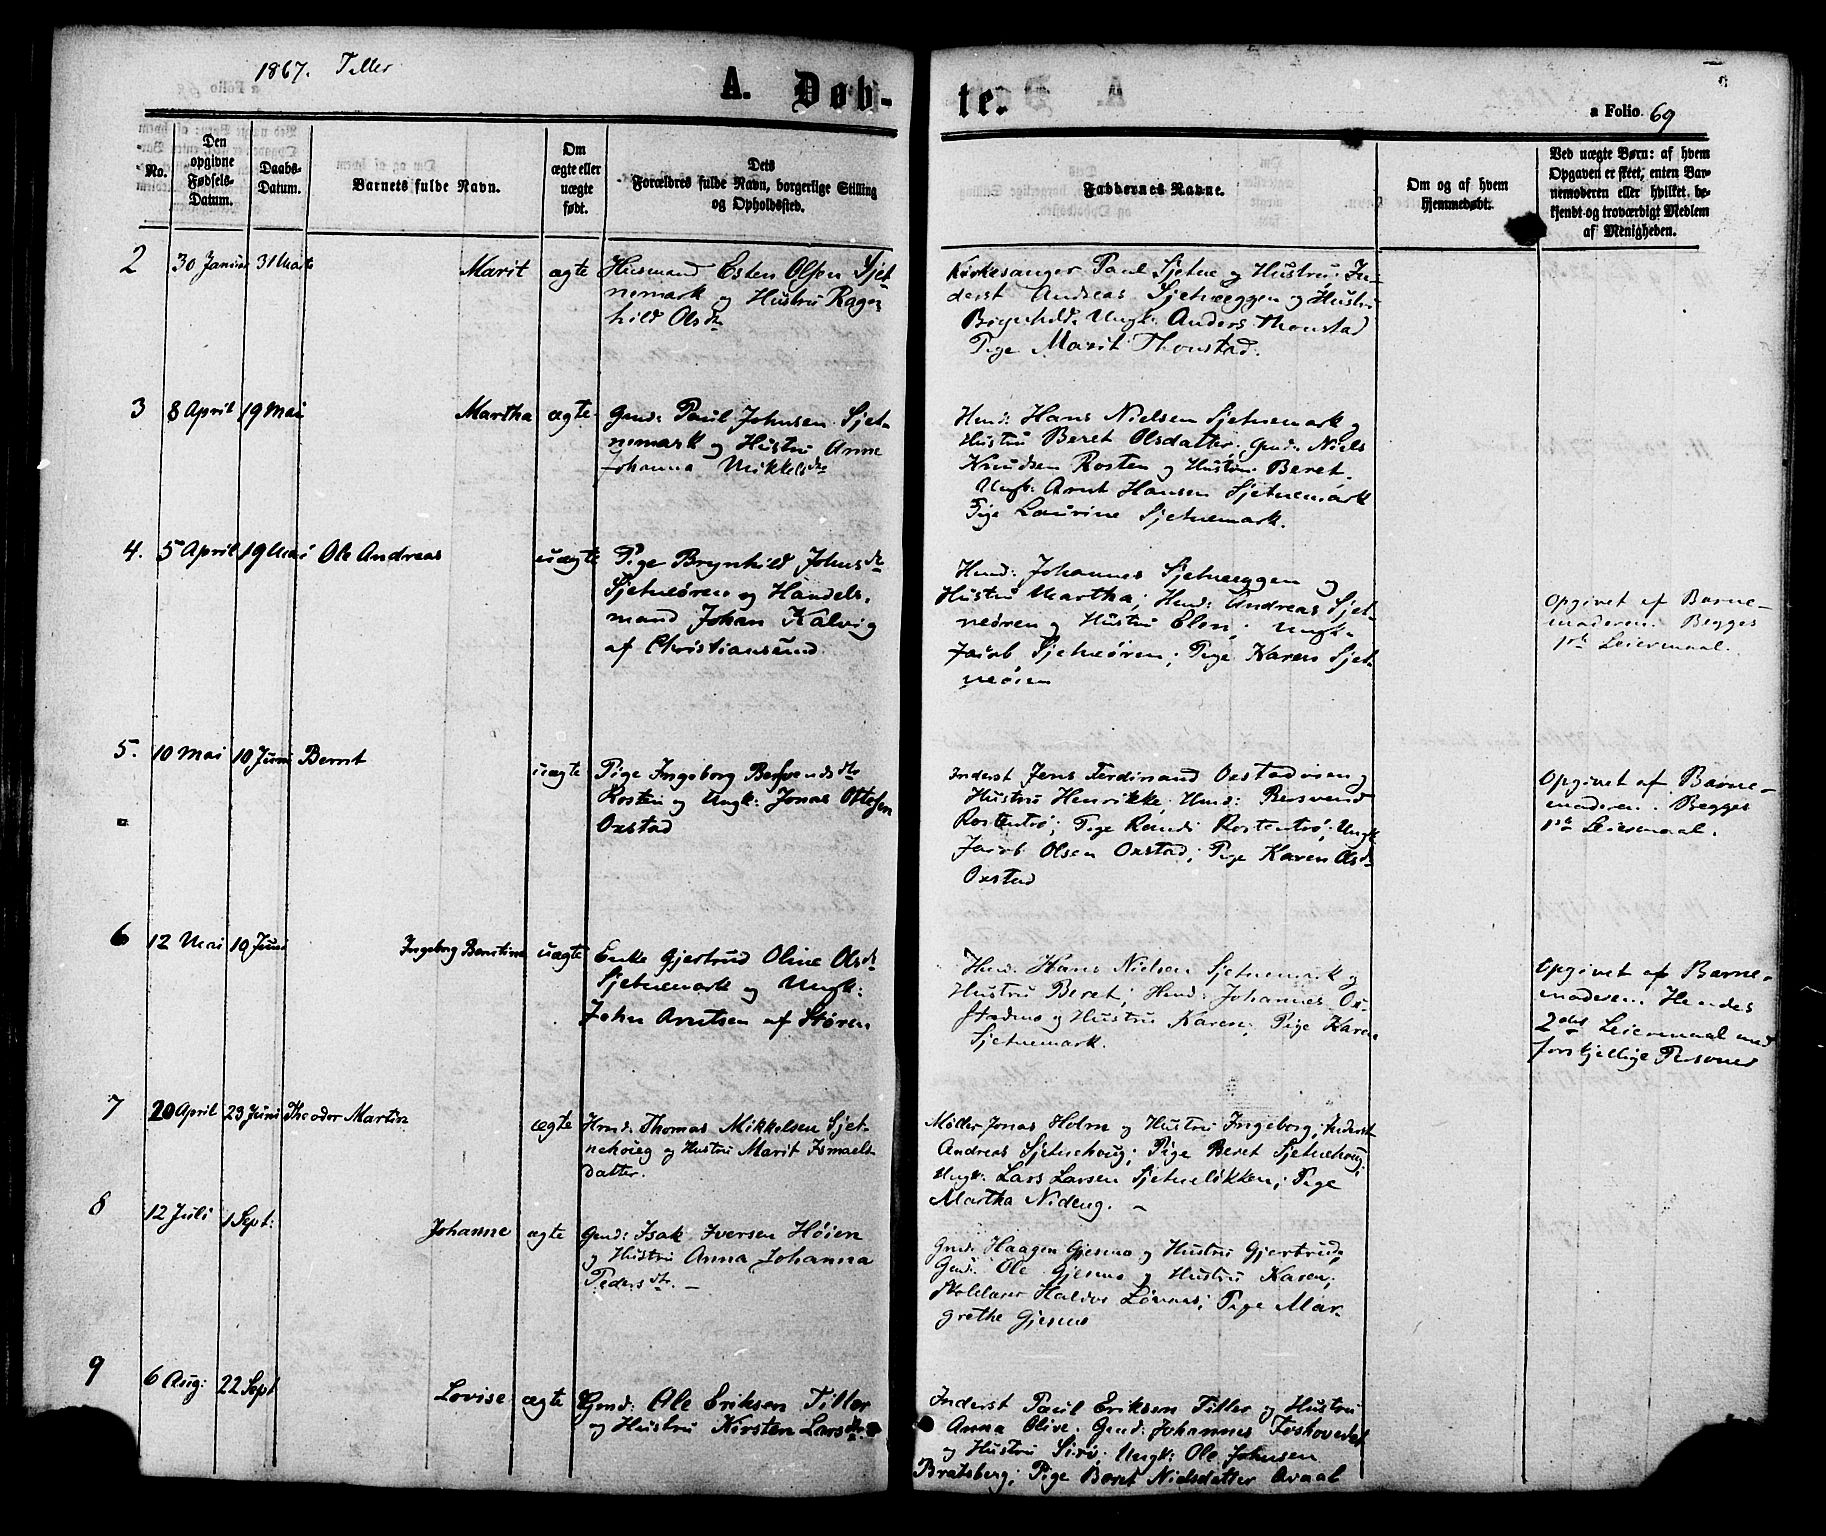 1867. Tiller
A. Døb-
te.
a Folio 69
No.
Den opgivne Fødsels-Datum.
Daabs-Datum.
Barnets fulde Navn.
Om ægte eller uægte født.
Dets
Forældres fulde Navn, borgerlige Stilling
og Opholdssted.
Faddernes Navne.
Om og af hvem
hjemmedøbt.
Ved uægte Børn: af hvem
Opgaven er skeet, enten Bar-
nemoderen eller hvilket be-
kjendt og troværdigt Medlem
af Menigheden.
2 30 Januar 31 Marts Marit ægte Husmand Esten Olsen Sjet-
nemark og Hustru Ragn-
hild Olsdtr
Kirkesanger Paul Sjetne og Hustru; In-
derst Andreas Sjetneeggen og Hustru
Brynhild. Ungk: Anders Thonstad
Pige Marit Thonstad.
3 8 April 19 Mai Martha ægte Gmd: Paul Johnsen Sjet-
nemark og Hustru Anne
Johanna Mikkelsdtr
Hmd: Hans Nielsen Sjetnemark og
Hustru Beret Olsdatter; Gmd: Niels
Knudsen Rosten og Hustru Beret.
Ungk: Arnt Hansen Sjetnemark
Pige Laurine Sjetnemark.
4. 5 April 19 Mai Ole Andreas uægte Pige Brynhild Johnsdtr
Sjetneøren og Handels-
mand Johan Kalvig
af Christiansund
Hmd: Johannes Sjetneeggen og
Hustru Martha; Hmd: Andreas Sjet-
neøren og Hustru Elen; Ungk.
Jacob Sjetneøren; Pige Karen Sjet-
neøien
Opgivet af Barne-
moderen. Begges
1ste Leiermaal.
5. 10 Mai 10 Juni Bernt uægte Pige Ingeborg Bersvendsdtr
Rosten og Ungk: Jonas Ottesen
Oxstad
Inderst Jens Ferdinand Oxstadøien og
Hustru Henrikke, Hmd: Bersvend
Rostentrø; Pige Randi Rostentrø; Ungk
Jacob Olsen Oxstad; Pige Karen Olsdtr
Oxstad
Opgivet af Barne-
moderen. Begges
1ste Leiermaal.
6 12 Mai 19 Juni Ingeborg Berntine uægte Enke Gjertrud Oline Olsdtr
Sjetnemark og Ungk:
John Arntsen af Støren
Hmd: Hans Nielsen Sjetnemark og
Hustru Beret; Hmd: Johannes Ox-
stadmo og Hustru Karen; Pige Karen
Sjetnemark.
Opgivet af Barne-
moderen. Hendes
2det Leiermaal med
forskjellige Personer
7 20 April 23 Juni Theodor Martin ægte Hmd: Thomas Mikkelsen Sjet-
nehoug og Hustru Marit Ismaels-
datter.
Møller Jonas Holm og Hustru Ingeborg; Inderst
Andreas Sjetnehoug; Pige Beret Sjetnehoug;
Ungk: Lars Larsen Sjetneløkken; Pige
Martha Nideng. –
8 12 Juli 1 Sept: Johanne ægte Gmd: Isak Iversen Høien
og Hustru Anna Johanna
Pedersdtr. –
Gmd: Haagen Gjesmo og Hustru Gjertrud;
Gmd: Ole Gjesmo og Hustru Karen;
Skolelærer Haldor Løvaas; Pige Mar-
grethe Gjesmo
9 6 Aug: 22 Sept Lovise ægte Gmd: Ole Eriksen Tiller
og Hustru Kirsten Larsdtr
Inderst Paul Eriksen Tiller og Hustru
Anna Olive. Gmd: Johannes Toshovedet
og Hustru Siri; Ungk: Ole Johnsen
Bratsberg; Pige Beret Nielsdatter Qvaal